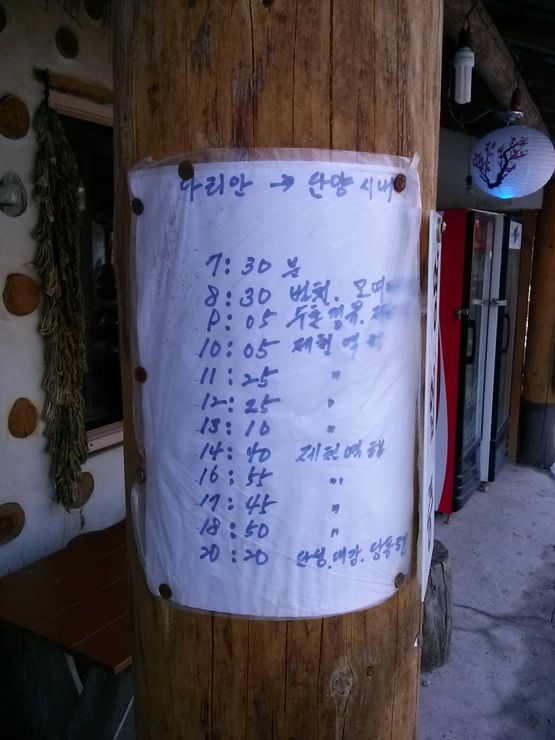 다리안 → 단양 시내
7:30 분
8:30
9:05
10:05 제천 역
11:25 〃
12:25 〃
13:10 〃
14:40 제천역
16:55 〃
17:45 〃
18:50 〃
20:20 단성.대강.